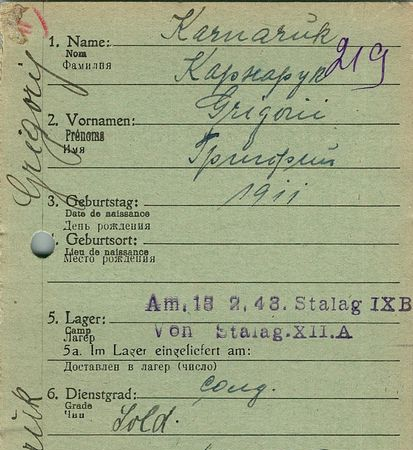 Karnaruk
1. Name:
Nom
Фамилия
Карнарук
219
Grigorii
2. Vornamen:
Prénoms
Имя
Григорий
1911
3. Geburtstag:
Date de naissance
День рождения
4. Geburtsort:
Lieu de naissance
Место рождения
Am. 18 2. 43. Stalag IX B
5. Lager:
Camp
Лагерь
Von Stalag. XII. A
5a. Im Lager eingeliefert am:
Доставлен в лагерь (число)
6. Dienstgrad:
Grade
Чин
солд.
Sold.
Grigorij